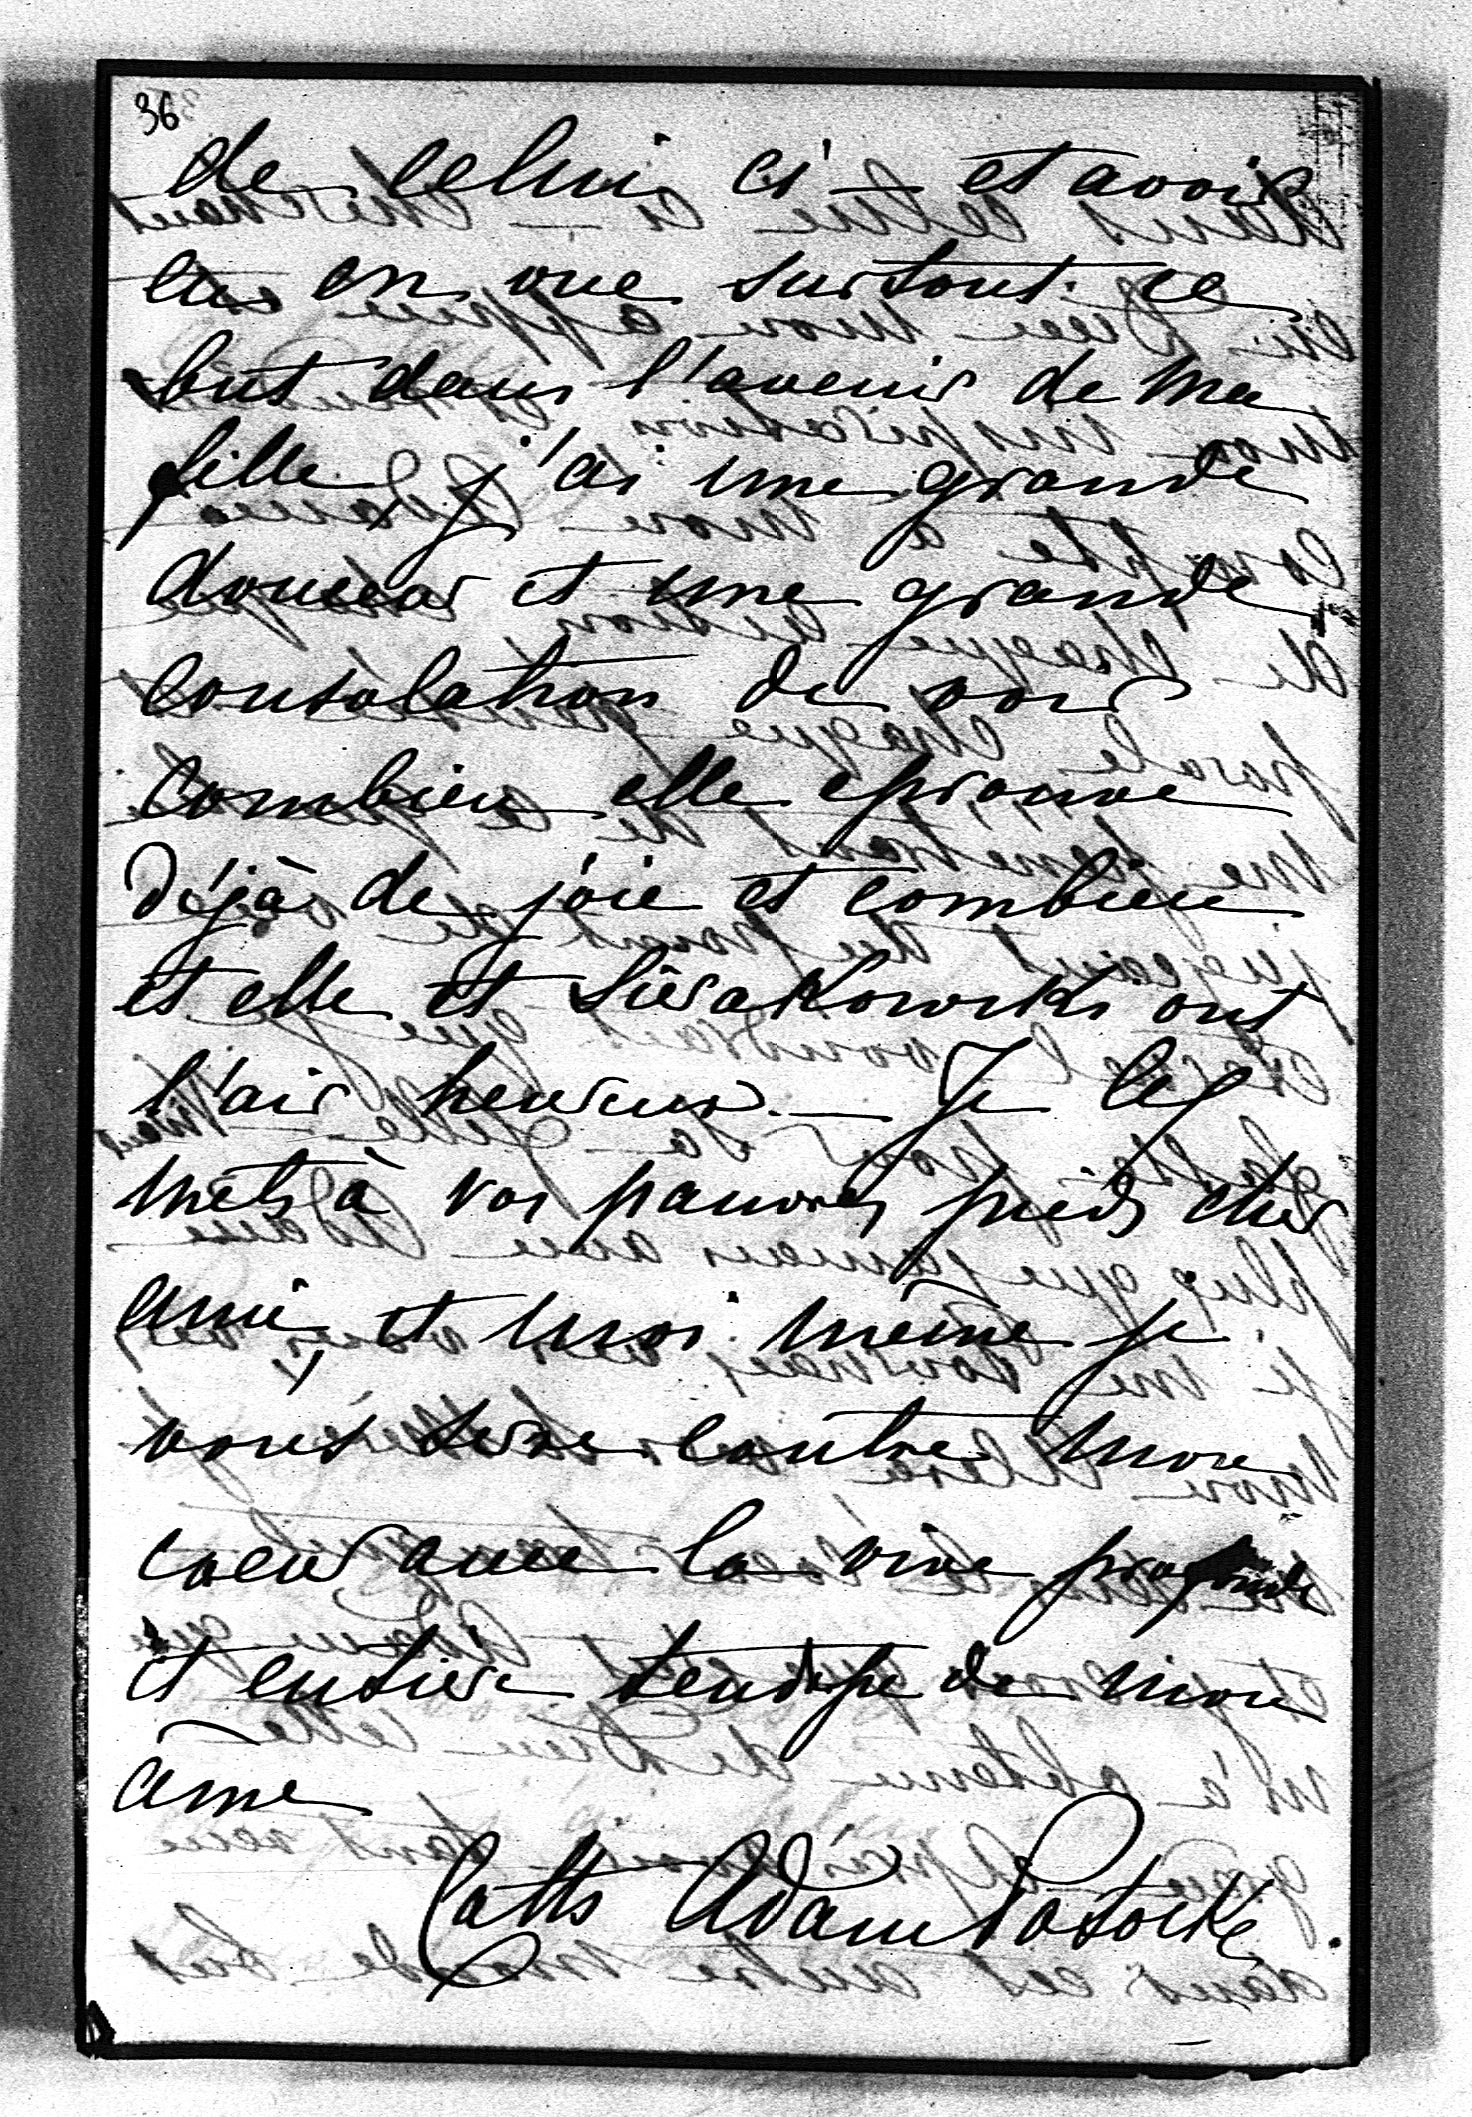 36
de celui ci — et avoir
eu en vue surtout ce
but dans l'avenir de ma
fille j'ai une grande
douceur et une grande
consolation de voir
combien elle eprouve
déjà de joie et combien
et elle et Sierakowski ont
l'air heureux. — Je les
mets à vos pauvres pieds cher
ami et moi même je
vous serre contre mon
coeur avec la vive profonde
et entiere tendresse de mon
âme
Adam Potocki